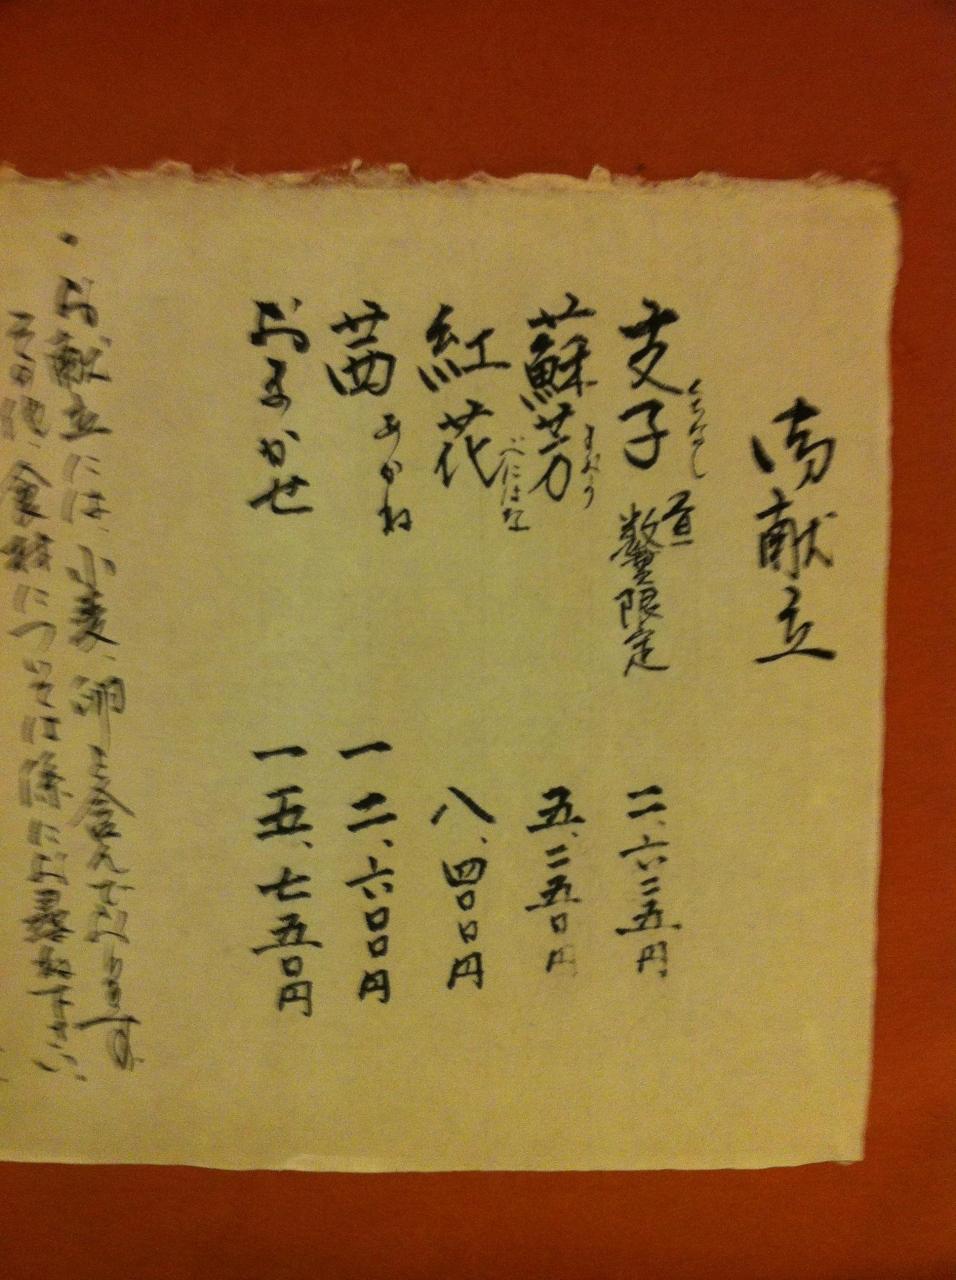 御献立
支子 くちなし 昼 数量限定 二、六二五円
蘇芳 すおう 五、二五〇円
紅花 べにはな 八、四〇〇円
茜 あかね 一二、六〇〇円
おまかせ 一五、七五〇円
・お献立には、小麦、卵を含んでおります
その他、食材については係にお尋ね下さい、